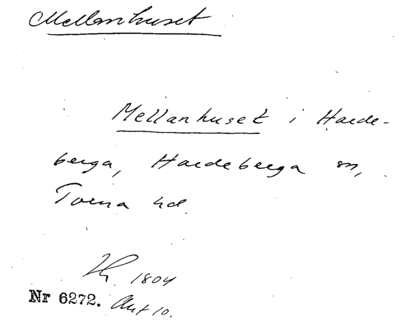 Mellanhuset
Mellanhuset i Harde-
berga, Hardeberga sn,
Torna hd.
1804
Nr 6272. Akt 10.